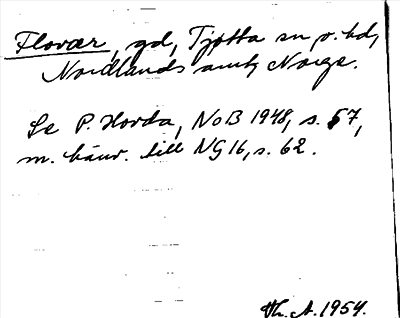 Flovær, gd, Tjøtta sn o. hd,
Nordlands amt, Norge.
Se P. Hovda, NoB 1948, s. 57,
m. hänv. till NG 16, s. 62.
Th. A. 1954.